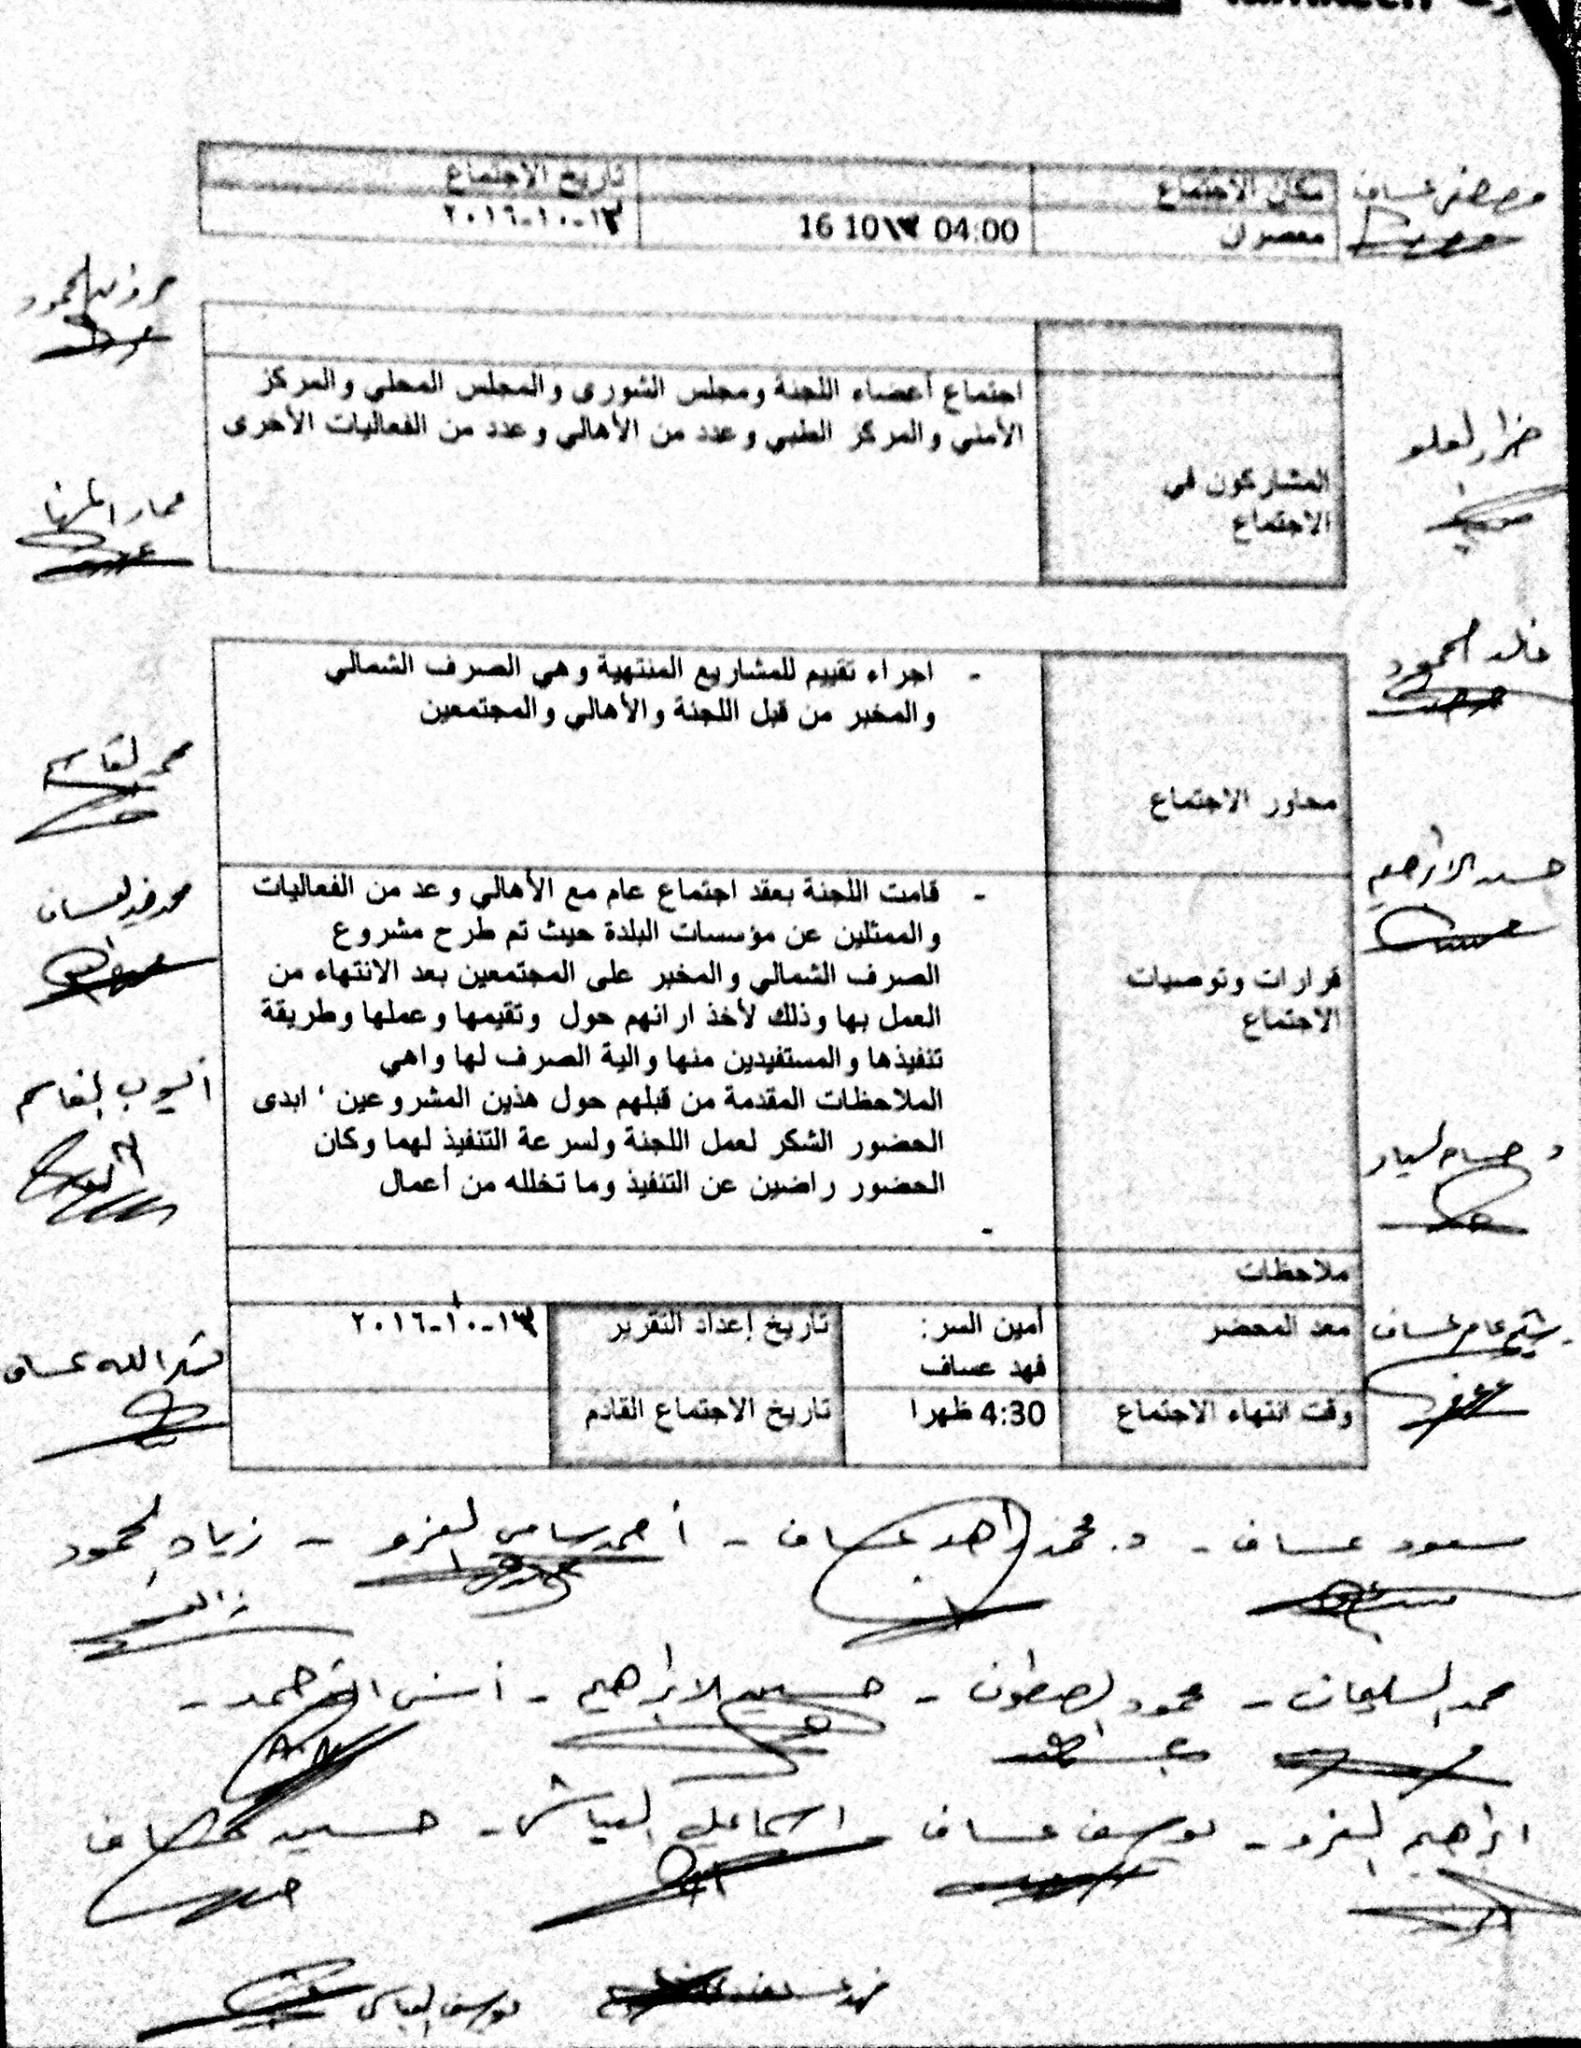 مكان الاجتماع تاريخ الاجتماع
معصران 04:00 ١٣ 10 16 ١٣-١٠-٢٠١٦
اجتماع أعضاء اللجنة ومجلس الشورى والمجلس المحلي والمركز
الأمني والمركز الطبي وعدد من الأهالي وعدد من الفعاليات الأخرى
المشاركون في
الاجتماع
- اجراء تقييم للمشاريع المنتهية وهي الصرف الشمالي
والمخبر من قبل اللجنة والأهالي والمجتمعين
محاور الاجتماع
قرارات وتوصيات
الاجتماع
- قامت اللجنة بعقد اجتماع عام مع الأهالي وعد من الفعاليات
والممثلين عن مؤسسات البلدة حيث تم طرح مشروع
الصرف الشمالي والمخبر على المجتمعين بعد الانتهاء من
العمل بها وذلك لأخذ ارائهم حول وتقيمها وعملها وطريقة
تنفيذها والمستفيدين منها والية الصرف لها واهي
الملاحظات المقدمة من قبلهم حول هذين المشروعين ' ابدى
الحضور الشكر لعمل اللجنة ولسرعة التنفيذ لهما وكان
الحضور راضين عن التنفيذ وما تخلله من أعمال
-
ملاحظات
معد المحضر أمين السر: تاريخ إعداد التقرير ١٣-١٠-٢٠١٦
فهد عساف
وقت انتهاء الاجتماع 4:30 ظهرا تاريخ الاجتماع القادم
مصطفى عساف
خالد المحمود
حسين الابراهيم
محمد القاسم
أيوب القاسم
مسعود عساف - د. محمد زاهد عساف - أحمد سامي العزو - زياد المحمود
محمد السليمان - محمود السطوف - حسين الابراهيم - أنس
ابراهيم العزو - يوسف عساف - اسماعيل العباس - حسين عساف
يوسف العباس